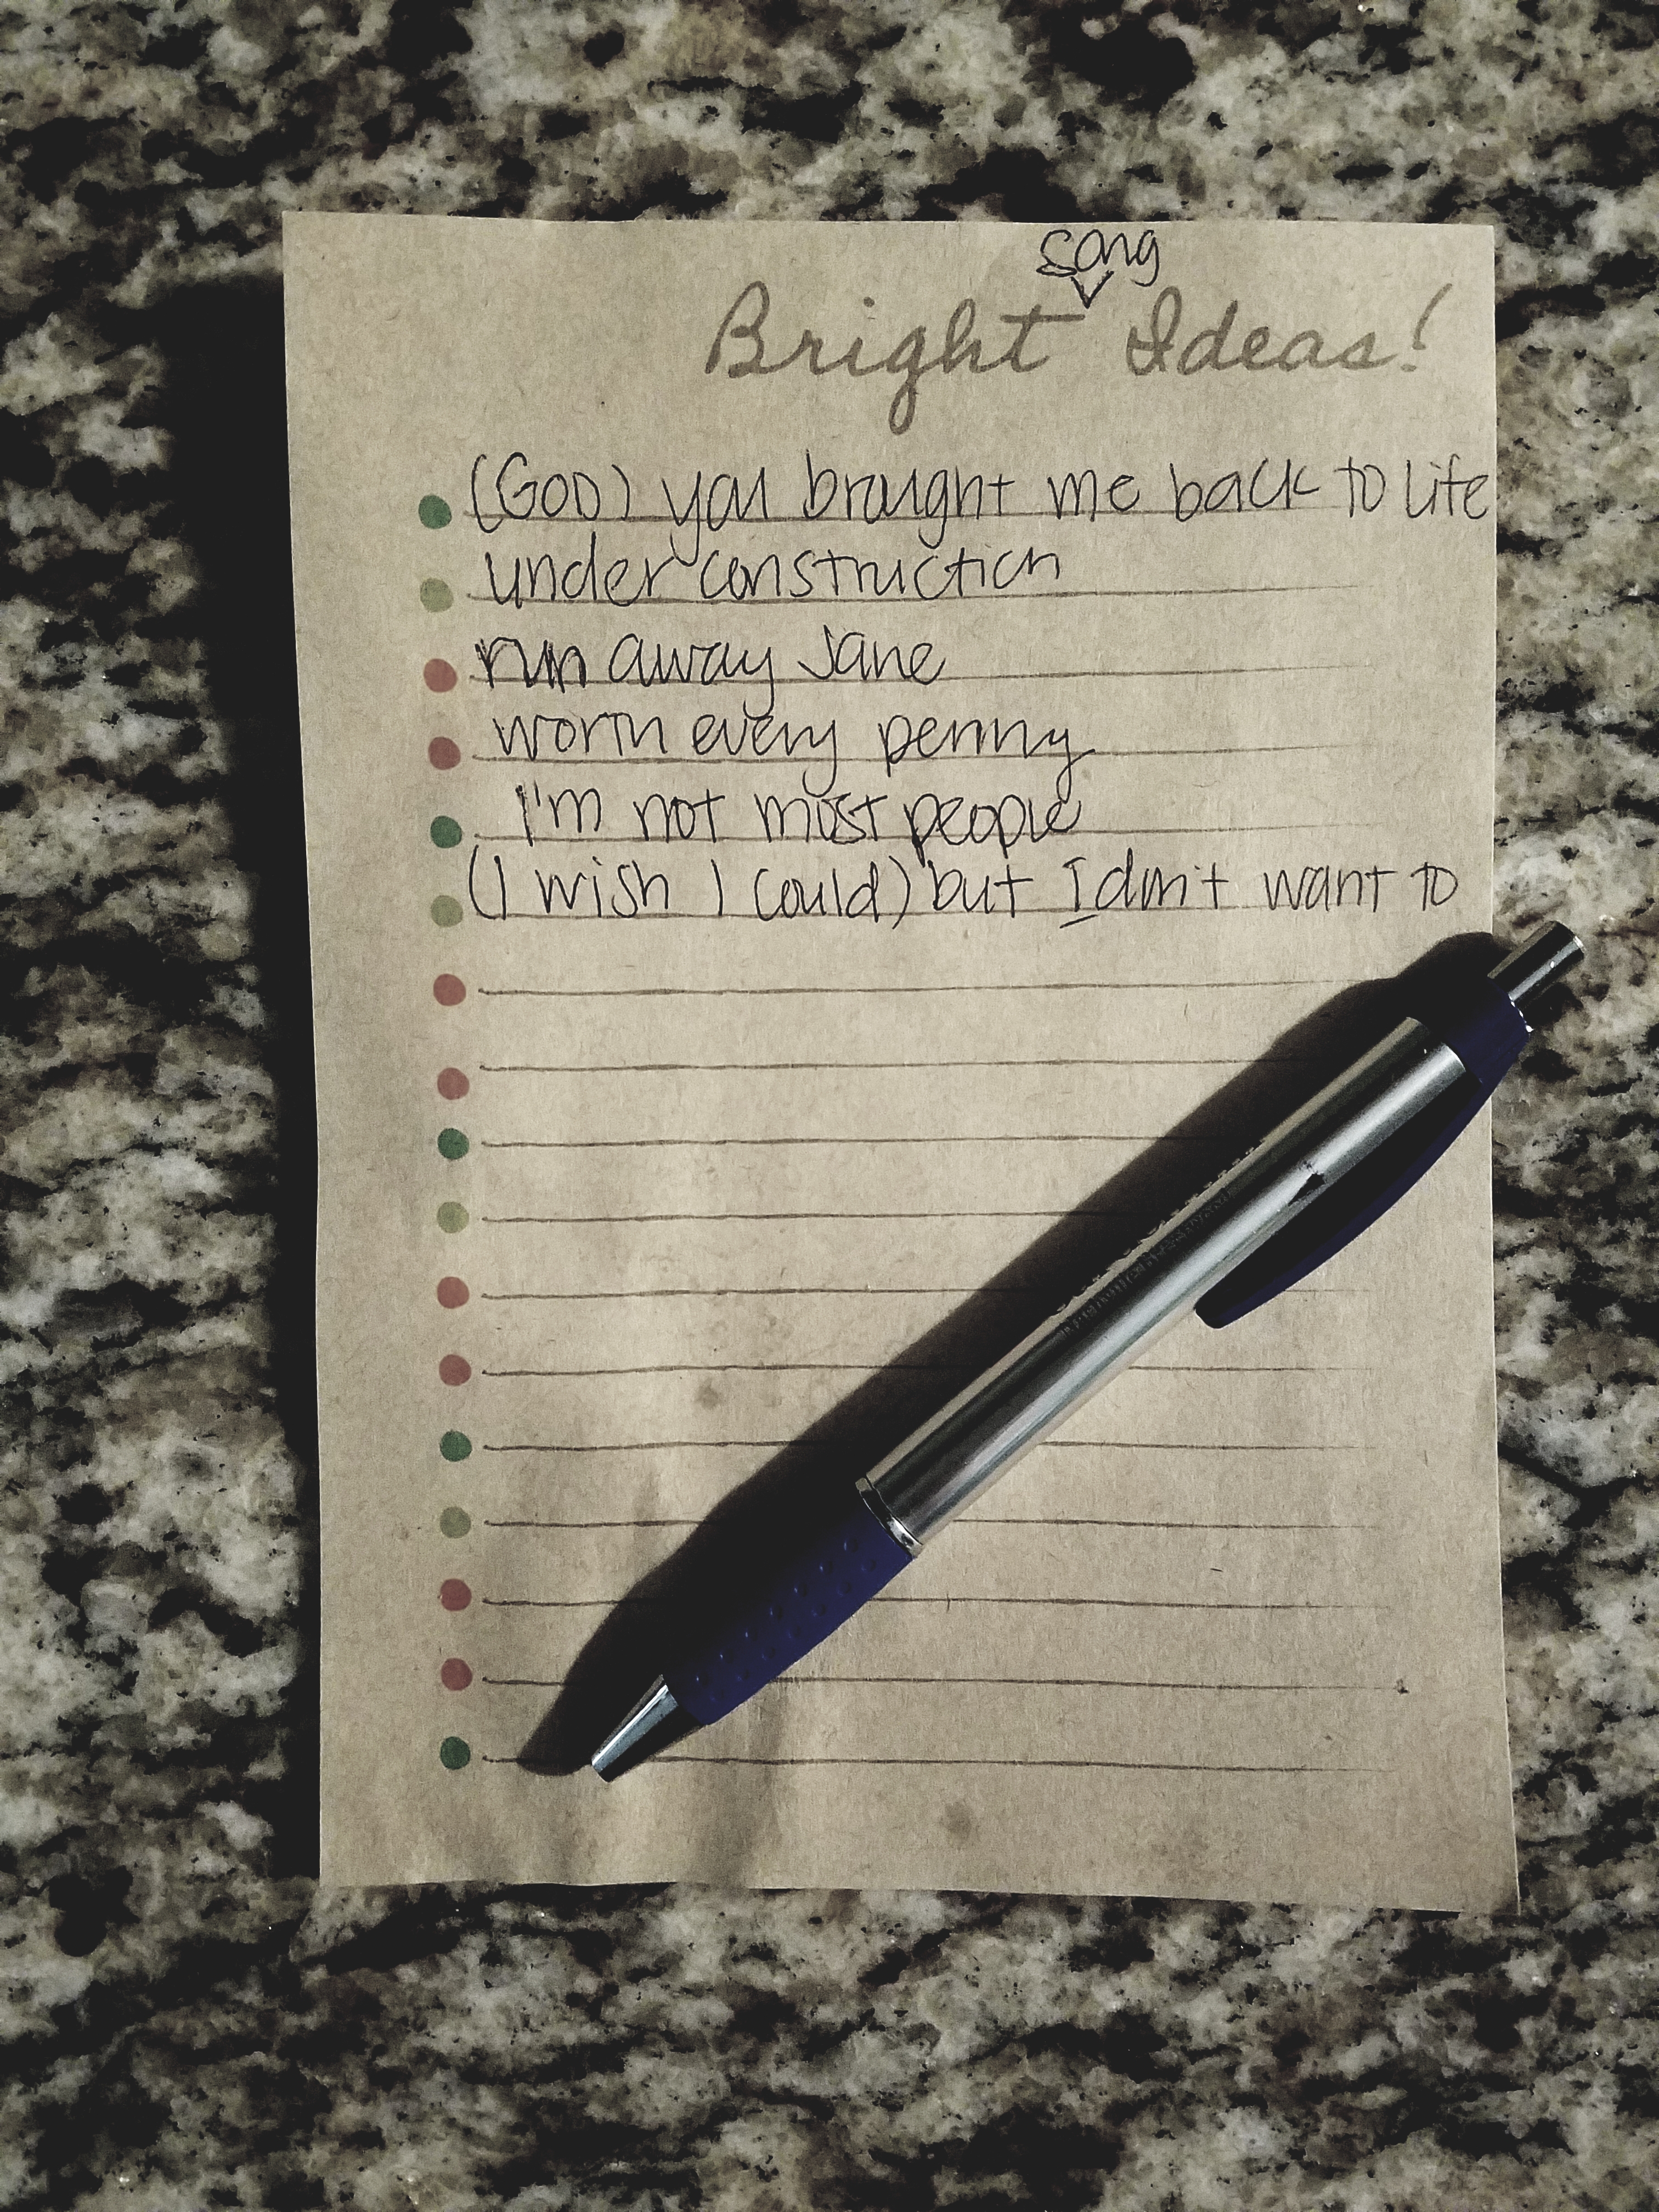 song
Bright Ideas!
(GOD) you brought me back to life
under construction
run away Jane
worth every penny
I'm not most people
(I wish I could) but I don't want to